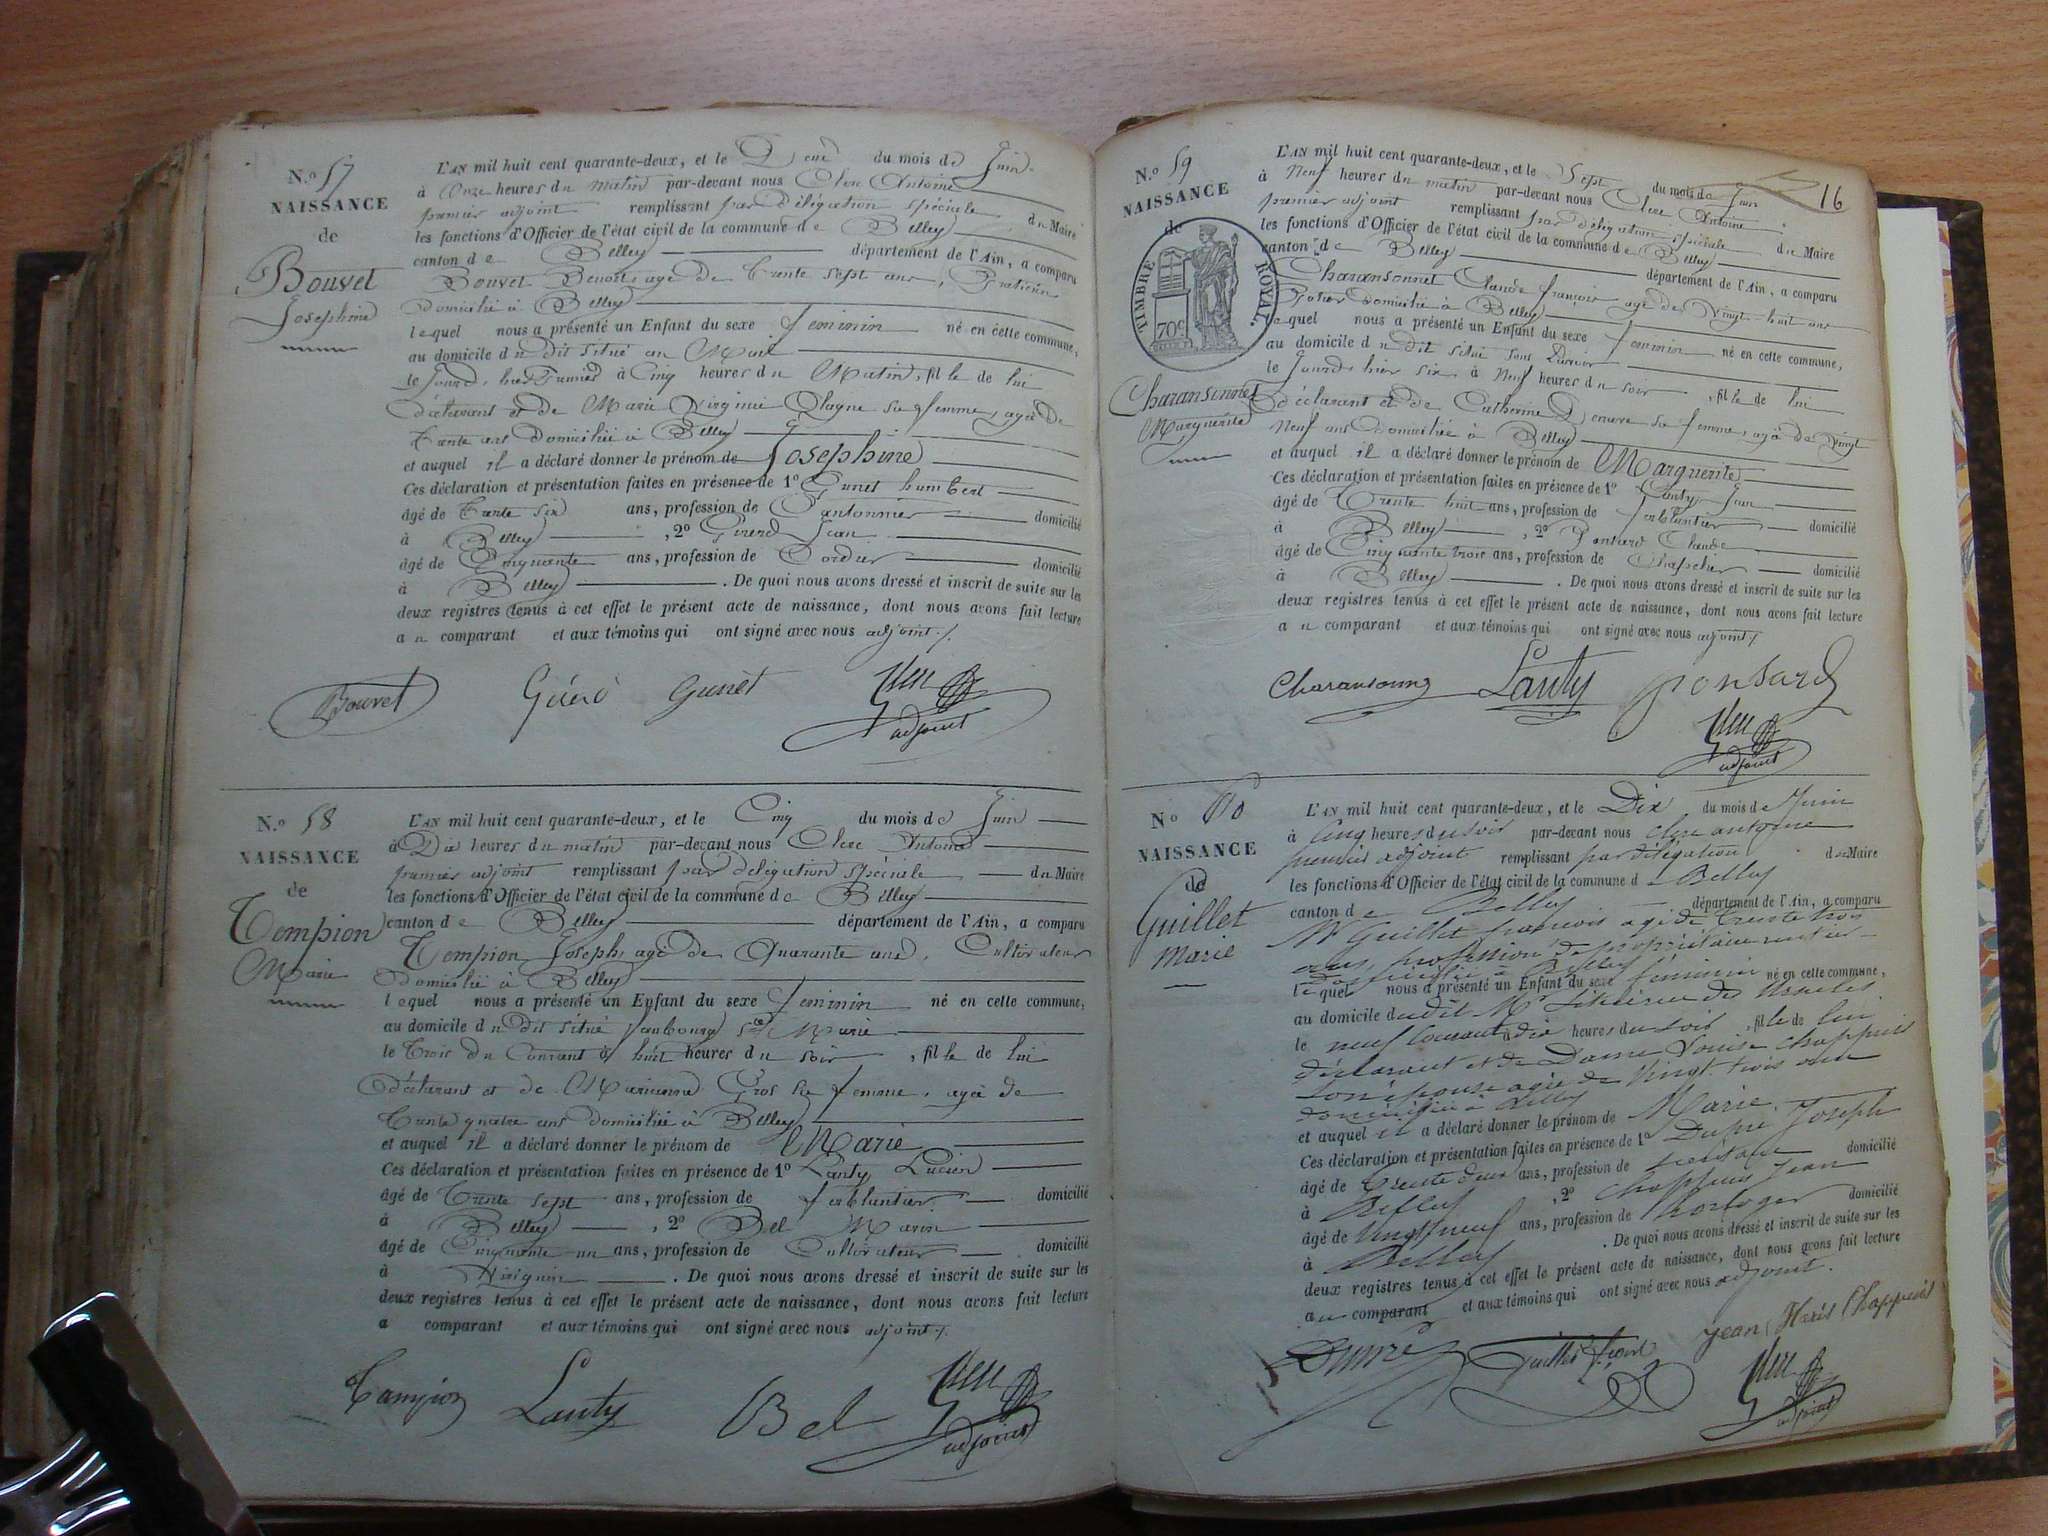 N.o 57
NAISSANCE
de
Bouvet
Josephine
L'AN mil huit cent quarante-deux, et le Deux du mois de Juin
à Onze heures du matin par-devant nous Clerc Antoine
premier adjoint remplissant par délégation spéciale du Maire
les fonctions d'Officier de l'état civil de la commune de Belley
canton de Belley département de l'Ain, a comparu
Bouvet Benoit, agé de trente sept ans, Praticien
domicilié à Belley
lequel nous a présenté un Enfant du sexe feminin né en cette commune,
au domicile du dit situé au Mail
le Jourd'hier à Cinq heures du Matin, fille de lui
déclarant et de Marie Virginie sa femme, agée de
trente ans domiciliée à Belley
et auquel il a déclaré donner le prénom de Josephine
Ces déclaration et présentation faites en présence de 1o Gunet humbert
âgé de trente six ans, profession de Cantonnier domicilié
à Belley, 2o Girerd Jean
âgé de Cinquante ans, profession de Cordier domicilié
à Belley. De quoi nous avons dressé et inscrit de suite sur les
deux registres tenus à cet effet le présent acte de naissance, dont nous avons fait lecture
au comparant et aux témoins qui ont signé avec nous adjoint ./.
Bouvet Gunet Clerc
adjoint
N.o 58
NAISSANCE
de
Tempion
Marie
L'AN mil huit cent quarante-deux, et le Cinq du mois de Juin
à Dix heures du matin par-devant nous Clerc Antoine
premier adjoint remplissant par délégation spéciale du Maire
les fonctions d'Officier de l'état civil de la commune de Belley
canton de Belley département de l'Ain, a comparu
Tempion Joseph, agé de Quarante ans, Cultivateur
domicilié à Belley
lequel nous a présenté un Enfant du sexe feminin né en cette commune,
au domicile du dit situé faubourg Ste Marie
le Trois du Courant à huit heures du soir, fille de lui
déclarant et de Marianne Gros sa femme, agée de
trente quatre ans domiciliée à Belley
et auquel il a déclaré donner le prénom de Marie
Ces déclaration et présentation faites en présence de 1o Lanty Lucien
âgé de trente sept ans, profession de ferblantier domicilié
à Belley, 2o Bel Marin
âgé de Cinquante un ans, profession de Cultivateur domicilié
à Virignin. De quoi nous avons dressé et inscrit de suite sur les
deux registres tenus à cet effet le présent acte de naissance, dont nous avons fait lecture
a comparant et aux témoins qui ont signé avec nous adjoint ./.
Lanty Bel Clerc
adjoint
16
N.o 59
NAISSANCE
de
TIMBRE ROYAL.
70c
Charansonnet
Marguerite
L'AN mil huit cent quarante-deux, et le Sept du mois de Juin
à Neuf heures du matin par-devant nous Clerc Antoine
premier adjoint remplissant par délégation spéciale du Maire
les fonctions d'Officier de l'état civil de la commune de Belley
canton de Belley département de l'Ain, a comparu
Charansonnet Claude françois agé de Vingt huit ans
Potier domicilié à Belley
lequel nous a présenté un Enfant du sexe feminin né en cette commune,
au domicile du dit situé sous
le Jourd'hier six à Neuf heures du soir, fille de lui
déclarant et de Catherine sa femme, agée de Vingt
Neuf ans domiciliée à Belley
et auquel il a déclaré donner le prénom de Marguerite
Ces déclaration et présentation faites en présence de 1o Lanty Jean
âgé de Trente huit ans, profession de ferblantier domicilié
à Belley, 2o Ponsard Claude
âgé de Cinquante trois ans, profession de Chapelier domicilié
à Belley. De quoi nous avons dressé et inscrit de suite sur les
deux registres tenus à cet effet le présent acte de naissance, dont nous avons fait lecture
au comparant et aux témoins qui ont signé avec nous adjoint ./.
Lanty ponsard
Clerc
adjoint
No 60
NAISSANCE
de
Guillet
Marie
L'AN mil huit cent quarante-deux, et le Dix du mois de Juin
à Cinq heures du soir par-devant nous Clerc antoine
premier adjoint remplissant par délégation du Maire
les fonctions d'Officier de l'état civil de la commune de Belley
canton de Belley département de l'Ain, a comparu
Mr Guillet françois agé de trente trois
ans, profession de propriétaire rentier
domicilié à Belley
lequel nous a présenté un Enfant du sexe féminin né en cette commune,
au domicile dudit Mr
le neuf Courant à dix heures du soir, fille de lui
déclarant et de Dame Louise Chappuis
son épouse agée de Vingt trois ans
domiciliée à Belley
et auquel il a déclaré donner le prénom de Marie
Ces déclaration et présentation faites en présence de 1o Dupré Joseph
âgé de trente deux ans, profession de domicilié
à Belley, 2o Chappuis Jean
âgé de Vingt neuf ans, profession de horloger domicilié
à Belley. De quoi nous avons dressé et inscrit de suite sur les
deux registres tenus à cet effet le présent acte de naissance, dont nous avons fait lecture
au comparant et aux témoins qui ont signé avec nous adjoint.
Dupré Jean Chappuis
Clerc
adjoint